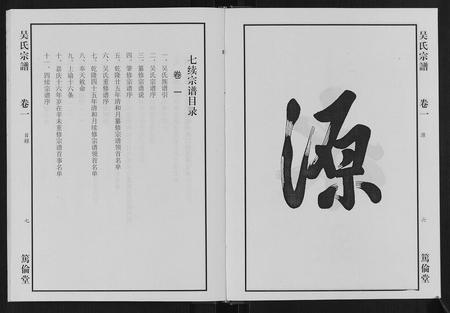 吴氏宗譜
卷一
源
六
篤倫堂
源
七续宗谱目录
卷一
一、吴氏族谱引
二、吴氏宗谱序
三、纂修宗谱说
四、肇修宗谱序
五、乾隆廿五年清和月纂修宗谱领首名单
六、吴氏重修谱序
七、乾隆四十五年清和月续修宗谱领首名单
八、奉天敕命
九、上谕十六条
十、嘉庆十六年岁在辛未重修宗谱首事名单
十一、四续宗谱序
吴氏宗譜
卷一
目録
七
篤倫堂